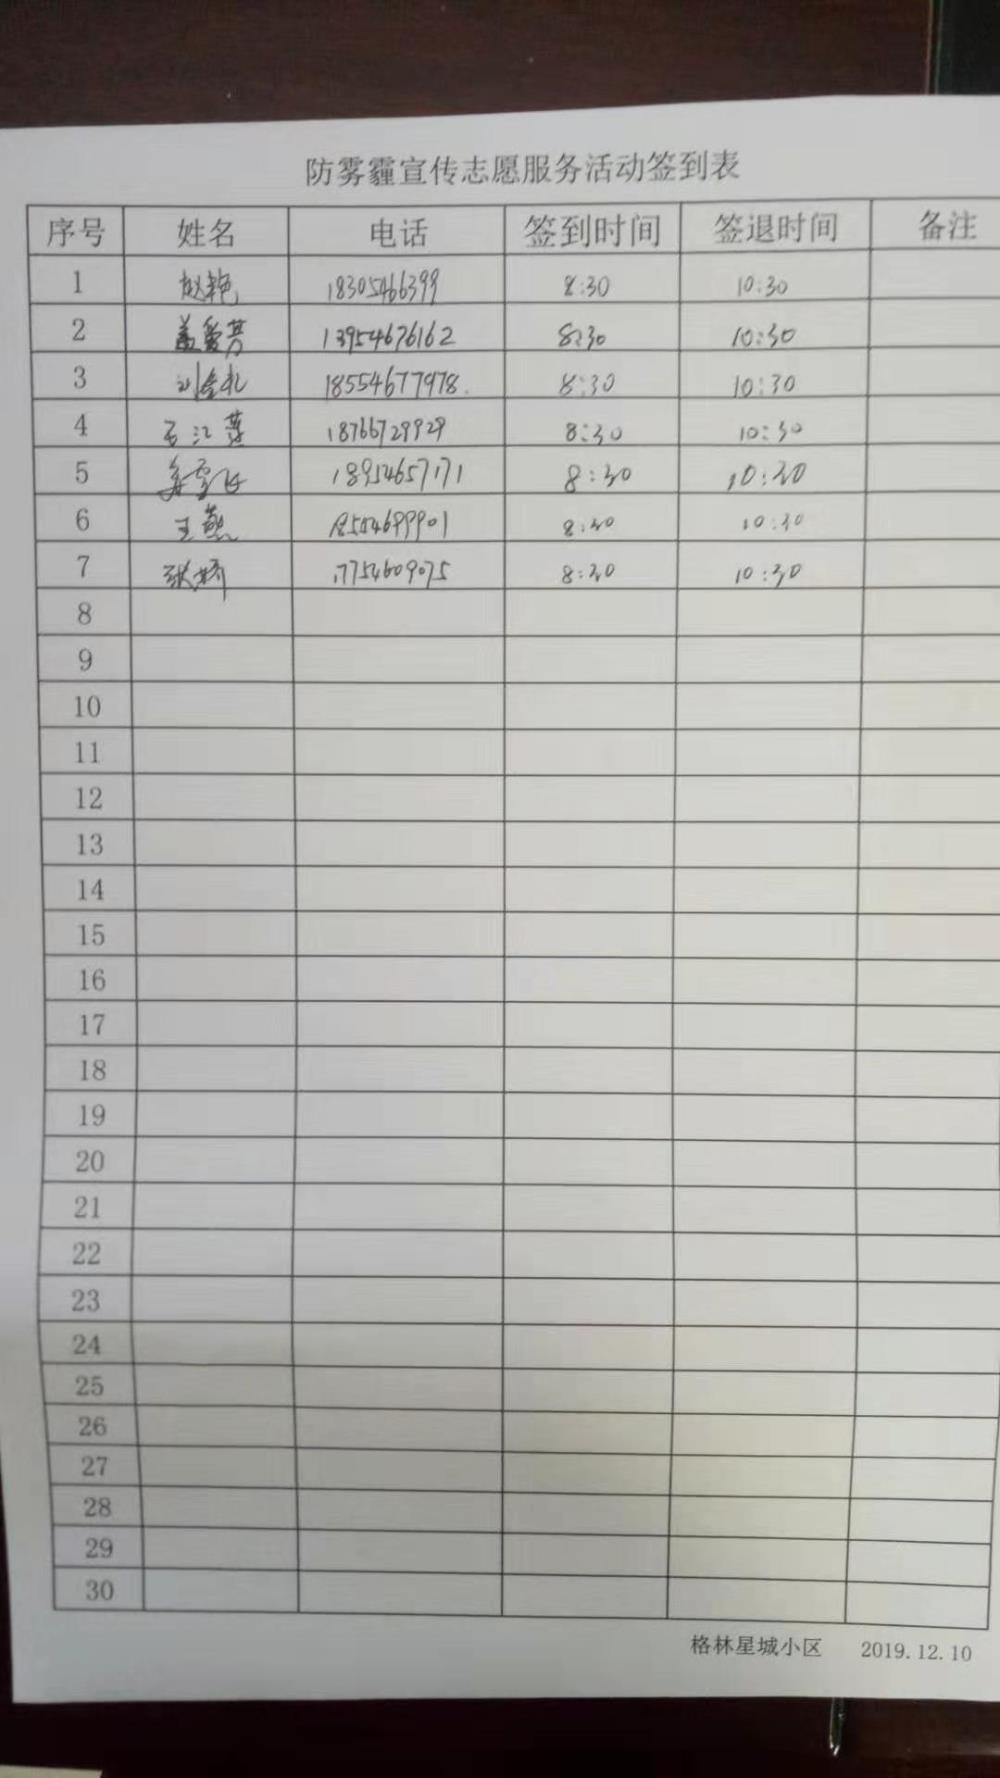 防雾霾宣传志愿服务活动签到表
序号 姓名 电话 签到时间 签退时间 备注
1 赵艳 18305466399 8:30 10:30
2 盖爱芳 13954676162 8:30 10:30
3 18554677978 8:30 10:30
4 18766729929 8:30 10:30
5 18954657171 8:30 10:30
6 王燕 18554699901 8:30 10:30
7 张娇 17754609075 8:30 10:30
8
9
10
11
12
13
14
15
16
17
18
19
20
21
22
23
24
25
26
27
28
29
30
格林星城小区 2019.12.10